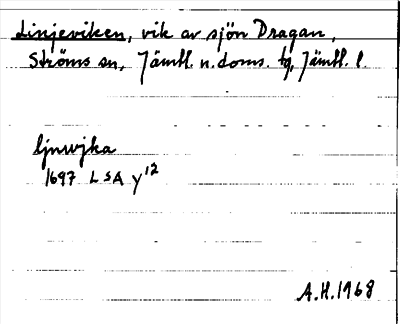 Linjeviken, vik av sjön Dragan,
Ströms sn, Jämtl. n. doms. tg, Jämtl. l.
ljnwjka
1697 LSA y12
A.H. 1968